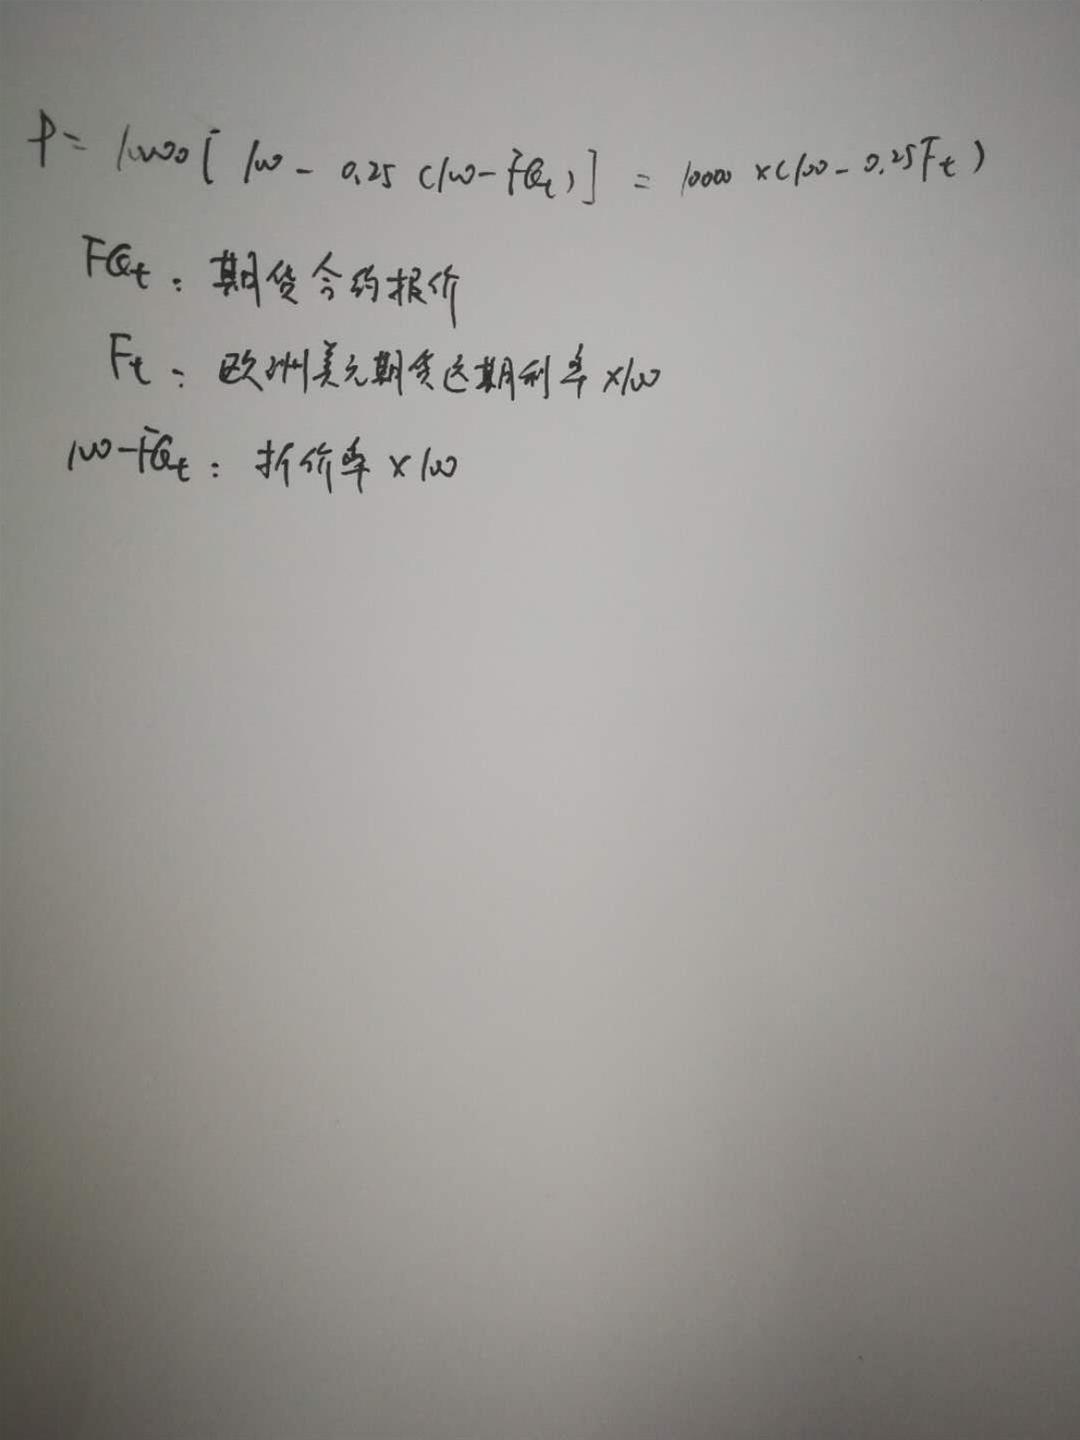 P= 10000[ 100 - 0.25 (100-FQt)] = 10000 ×(100-0.25Ft)
FQt: 期货合约报价
Ft: 欧洲美元期货远期利率×100
100-FQt: 折价率×100